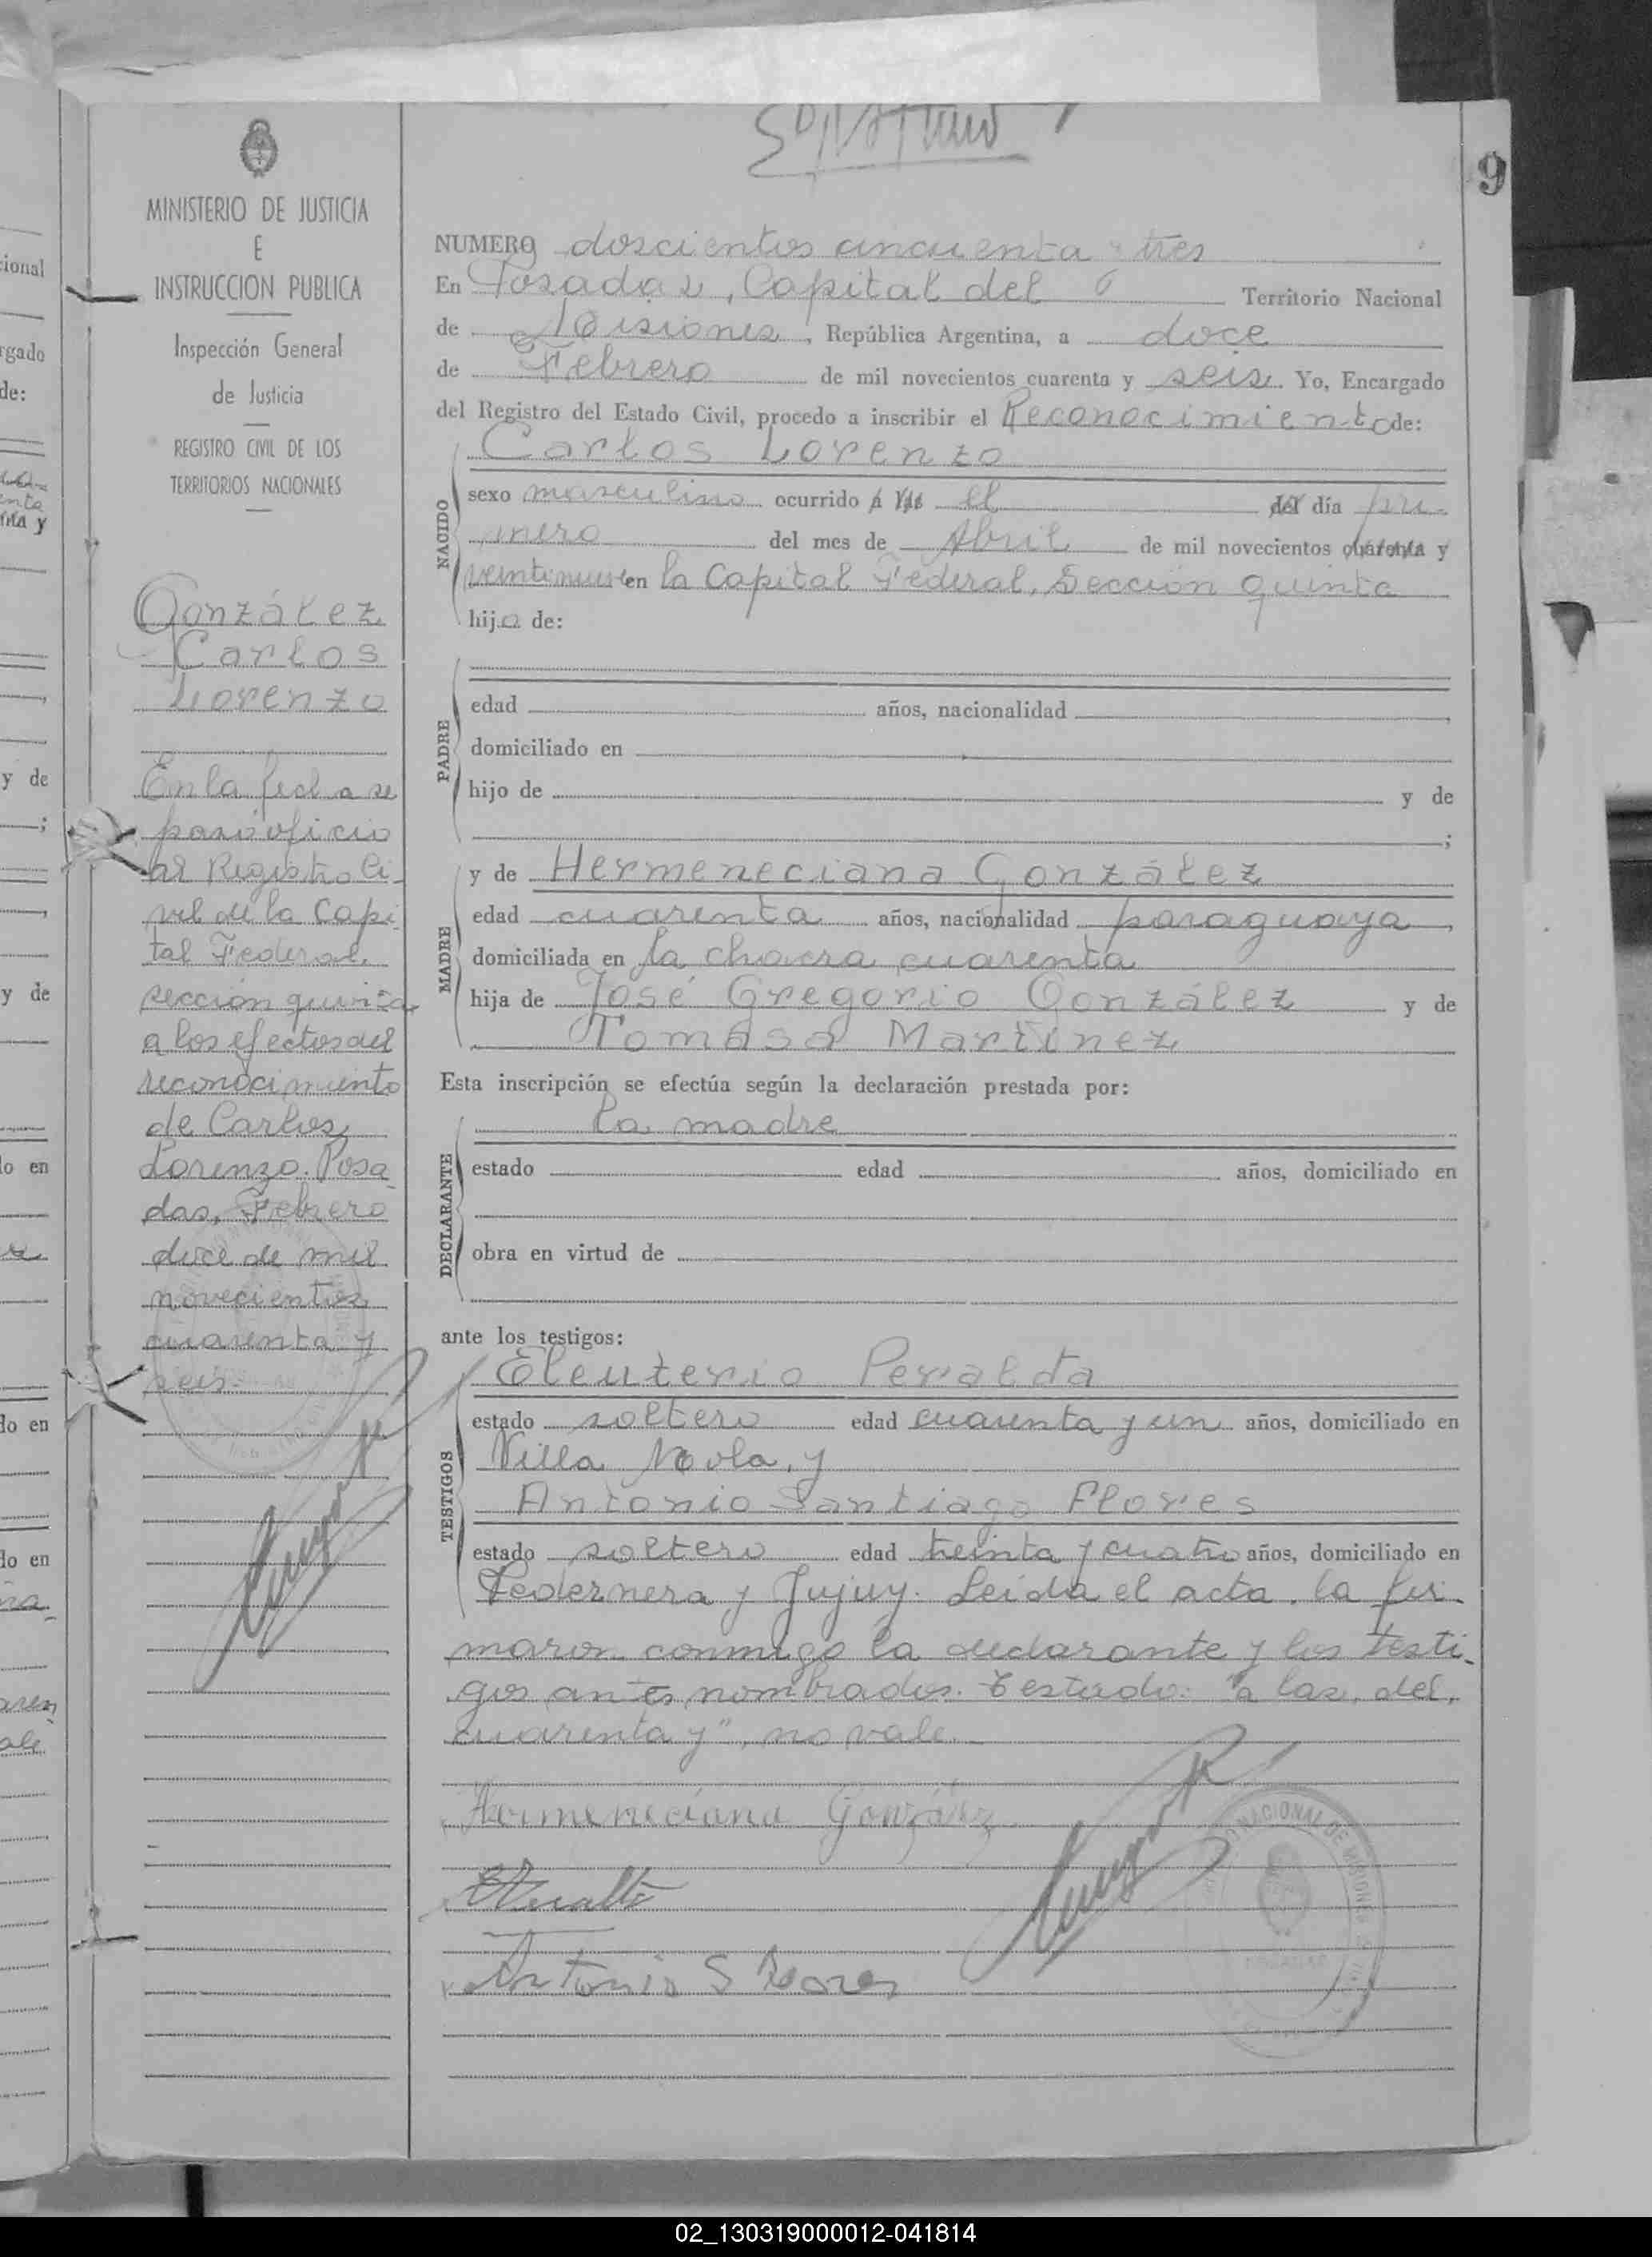 9
MINISTERIO DE JUSTICIA
E
INSTRUCCION PUBLICA
Inspección General
de Justicia
REGISTRO CIVIL DE LOS
TERRITORIOS NACIONALES
González
Carlos
Lorenzo
En la fecha se
paso oficio
al Registro Ci-
vil de la Capi-
tal Federal,
sección quinta
a los efectos del
reconocimiento
de Carlos
Lorenzo. Posa-
das, Febrero
doce de mil
novecientos
cuarenta y
seis.
NUMERO doscientos cincuenta y tres
En Posadas, Capital del Territorio Nacional
de Misiones, República Argentina, a doce
de Febrero de mil novecientos cuarenta y seis. Yo, Encargado
del Registro del Estado Civil, procedo a inscribir el Reconocimiento de:
NACIDO
Carlos Lorenzo
sexo masculino ocurrido a las el del día pri-
mero del mes de Abril de mil novecientos cuarenta y
veintinueve en la Capital Federal, Sección quinta
hijo de:
PADRE
edad años, nacionalidad
domiciliado en
hijo de y de
;
MADRE
y de Hermeneciana González
edad cuarenta años, nacionalidad paraguaya,
domiciliada en la chacra cuarenta
hija de José Gregorio González y de
Tomasa Martínez
Esta inscripción se efectúa según la declaración prestada por:
DECLARANTE
la madre
estado edad años, domiciliado en
obra en virtud de
ante los testigos:
TESTIGOS
Eleuterio Peralta
estado soltero edad cuarenta y un años, domiciliado en
Villa Mola, y
Antonio Santiago Flores
estado soltero edad treinta y cuatro años, domiciliado en
Pedernera y Jujuy. Leída el acta, la fir-
maron conmigo la declarante y los testi-
gos antes nombrados. Testado: "a las, del,
cuarenta y", no vale.
Hermeneciana González
EPeralta
Antonio S Flores
NACIONAL DE MISIONES
02_130319000012-041814